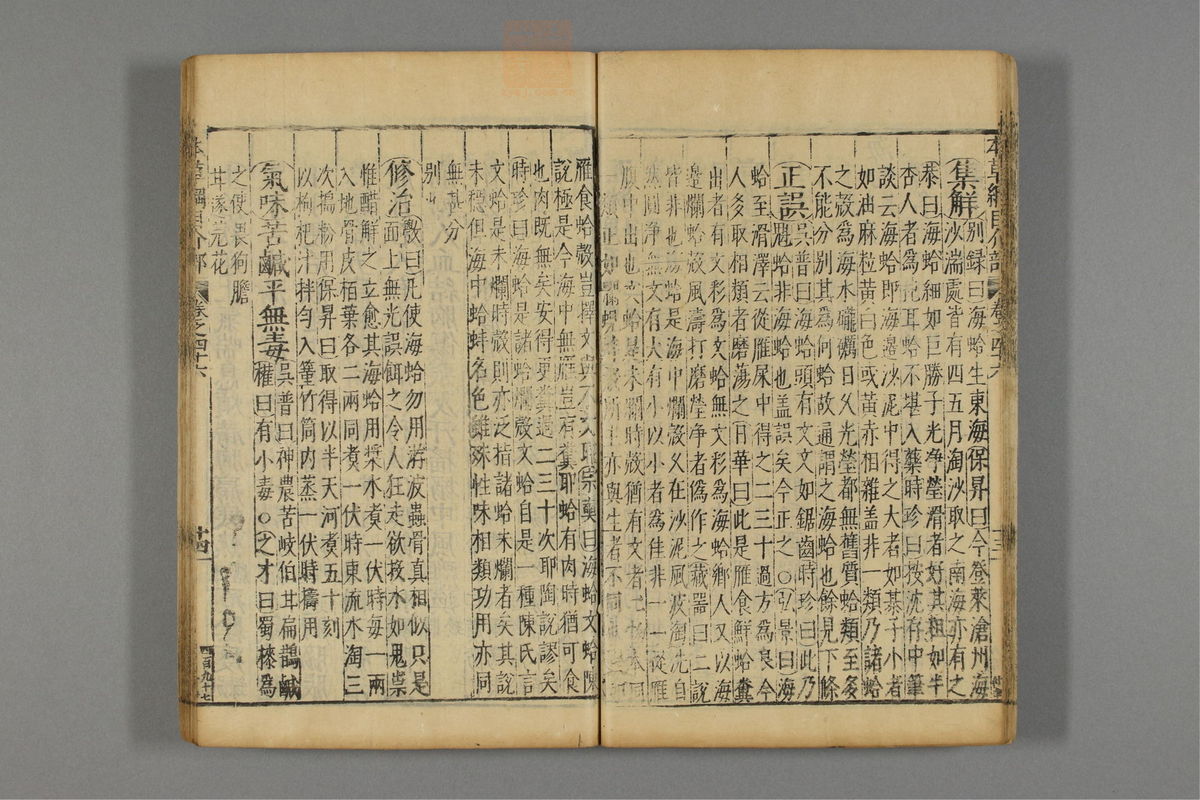 本草綱目介部 卷之四十六
集解別録曰海蛤生東海保昇曰今登萊滄州海
沙湍處皆有四五月淘沙取之南海亦有之
恭曰海蛤細如巨勝子光净瑩滑者好其粗如半
杏人者為㹠耳蛤不堪入藥時珍曰按沈存中筆
談云海蛤即海邊沙泥中得之大者如棊子小者
如油麻粒黄白色或黄赤相雜盖非一類乃諸蛤
之殻為海水礲礪日久光瑩都無舊質蛤類至多
不能分别其為何蛤故通謂之海蛤也餘見下條
正誤吳普曰海蛤頭有文文如鋸齒時珍曰此乃
魁蛤非海蛤也盖誤矣今正之○弘景曰海
蛤至滑澤云從雁屎中得之二三十過方為良今
人多取相類者磨蕩之日華曰此是雁食鮮蛤糞
出者有文彩為文蛤無文彩為海蛤鄉人又以海
邊爛蛤殻風濤打磨瑩净者偽作之藏器曰二説
皆非也海蛤是海中爛殻久在沙泥風波淘洗自
然圓净無文有大有小以小者為佳非一一從雁
腹中出也文蛤是未爛時殻猶有文者二
一類正如爛蜆 亦與生者不同
雁食蛤殻豈擇文與不文耶宗奭曰海蛤文蛤陳
説極是今海中無雁豈有糞耶蛤有肉時猶可食
也肉既無矣安得更糞過二三十次耶陶説謬矣
時珍曰海蛤是諸蛤爛殻文蛤自是一種陳氏言
文蛤是未爛時殻則亦泛指諸蛤未爛者矣其説
未穩但海中蛤蚌名色雖殊性味相類功用亦同
無甚分
别也
修治斆曰凡使海蛤勿用游波蟲骨真相似只是
面上無光誤餌之令人狂走欲投水如鬼祟
惟醋解之立愈其海蛤用漿水煮一伏時每一兩
入地骨皮栢葉各二兩同煮一伏時東流水淘三
次搗粉用保昇曰取得以半天河煮五十刻
以枸杞汁拌匀入篁竹筒内蒸一伏時擣用
氣味苦鹹平無毒吳普曰神農苦岐伯甘扁鵲鹹
權曰有小毒○之才曰蜀漆為
之使畏狗膽
甘遂芫花
本草綱目介部 卷之四十六 廿四 四百九十七